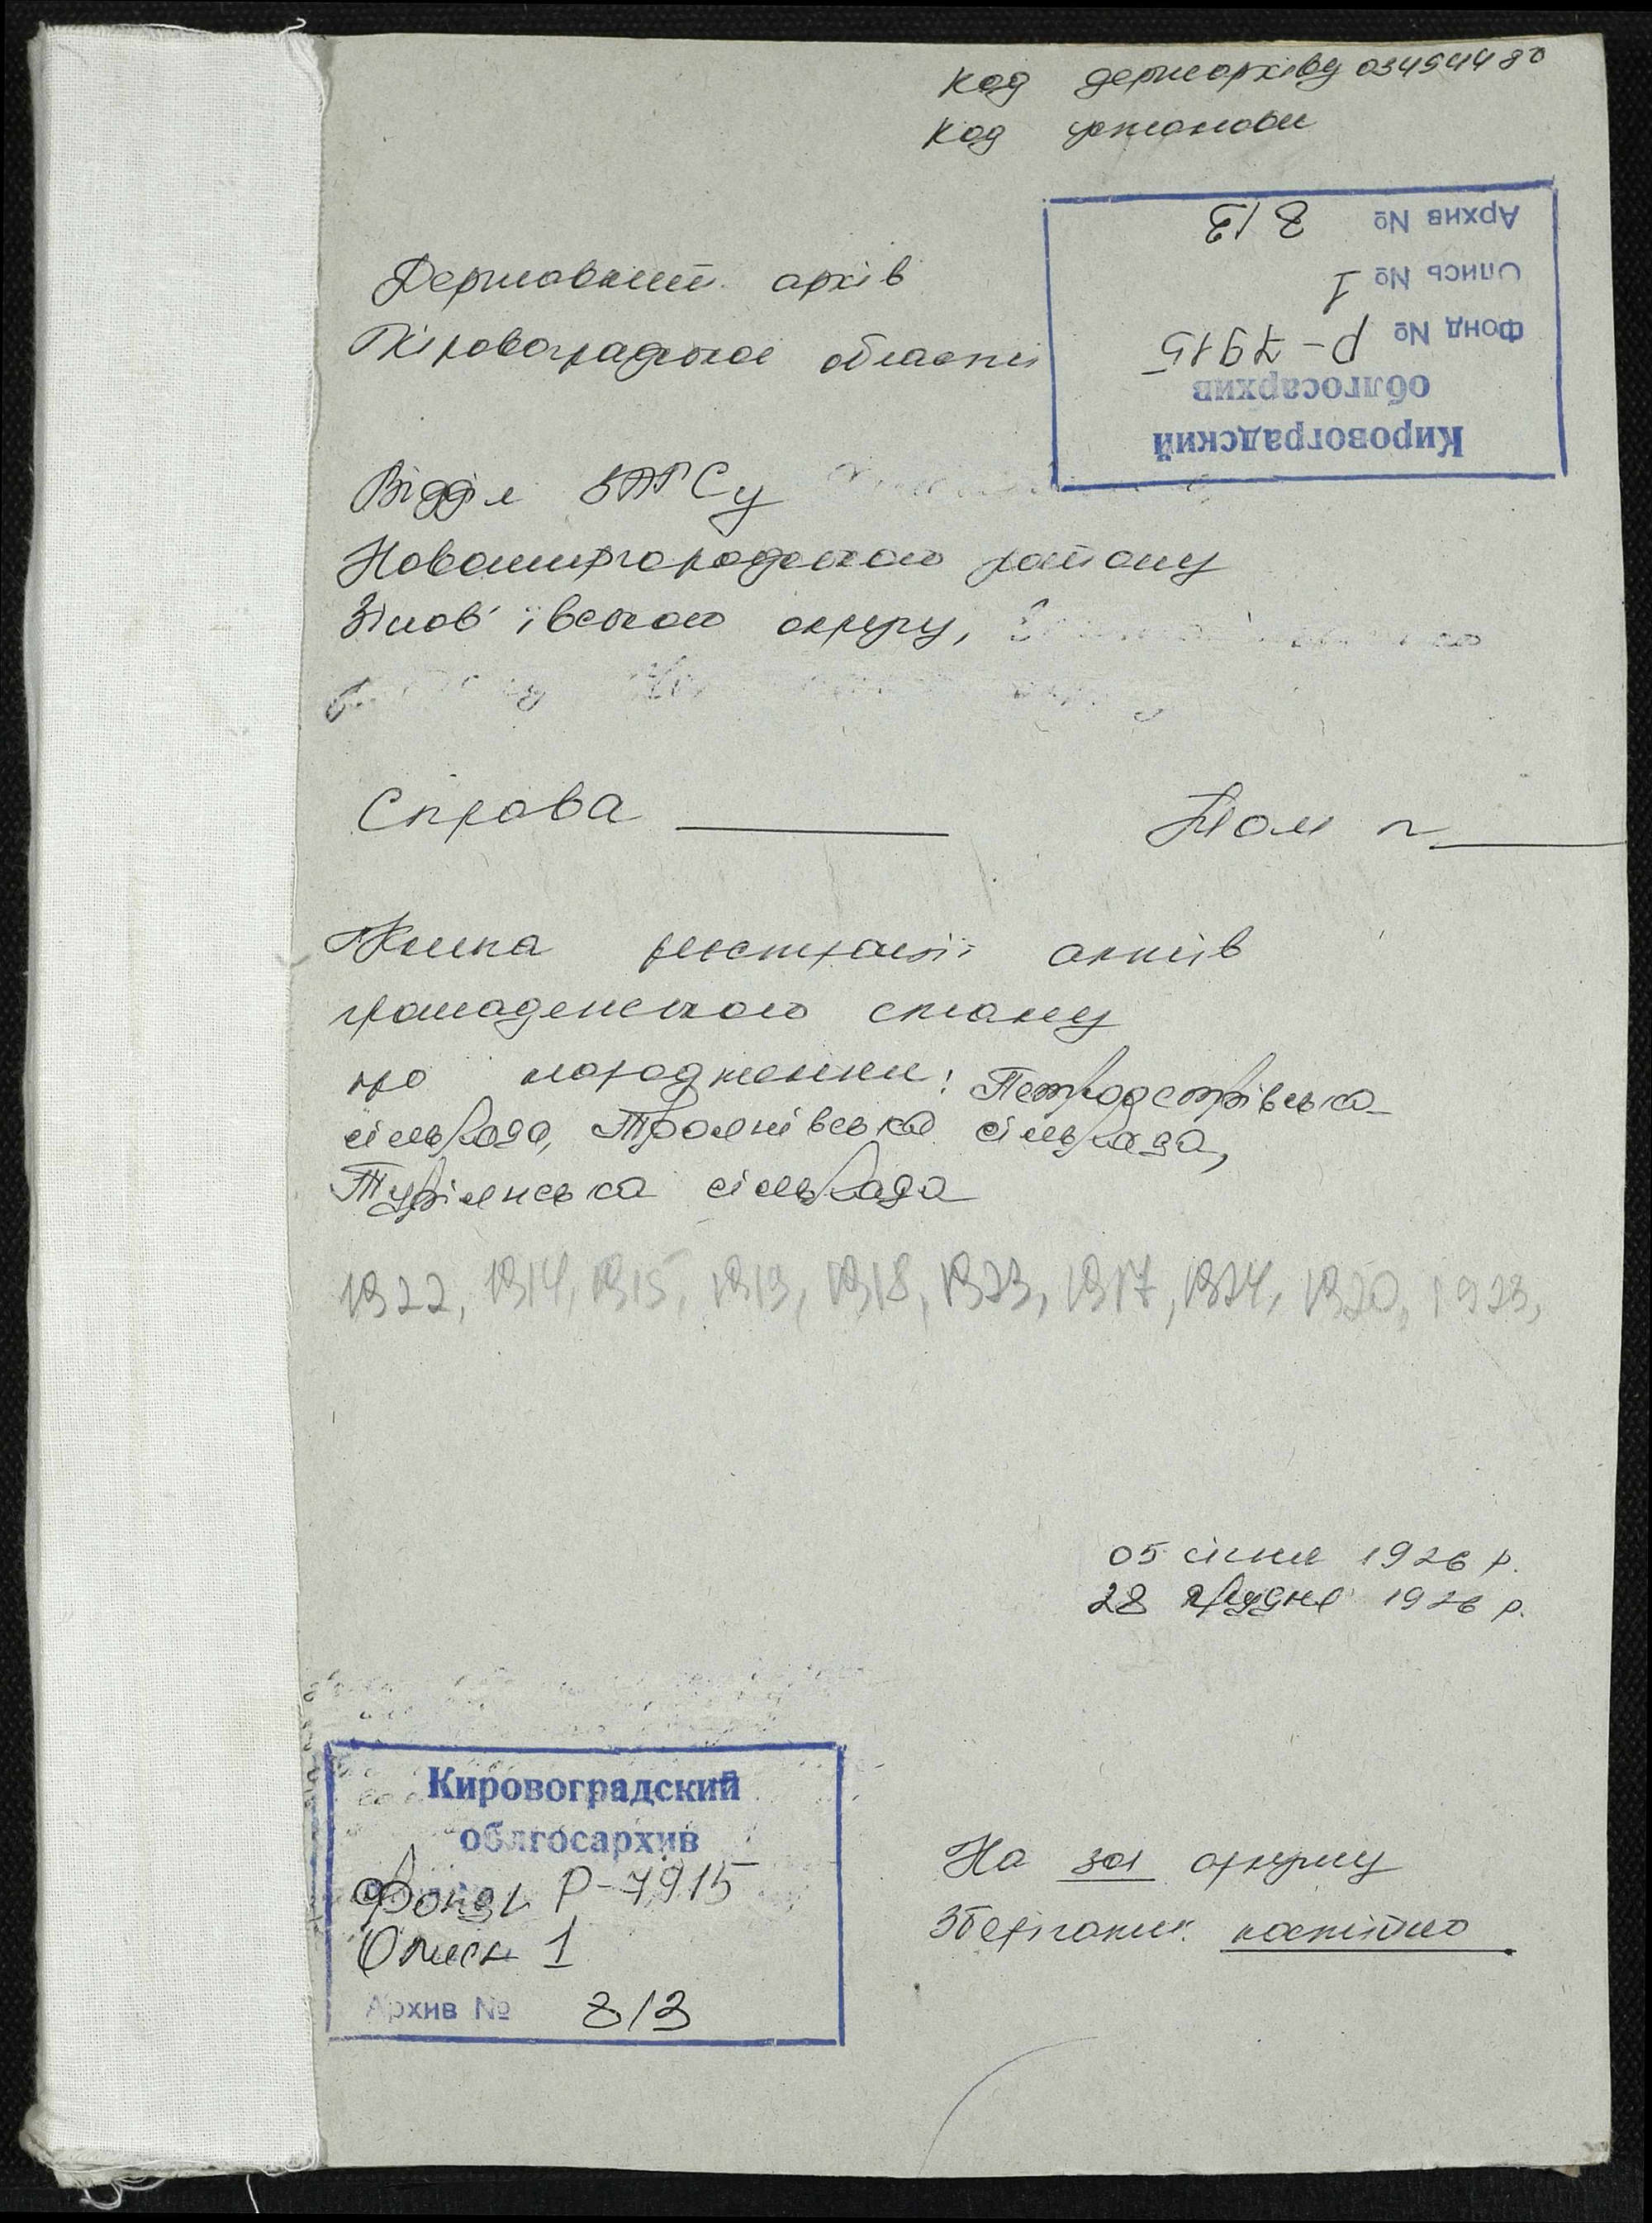 Код держархіву 03494480
Код установи
Архив № 813
Опись № 1
Фонд № Р-7915
облгосархив
Кировоградский
Державний архів
Кіровоградської області
Відділ ЗАГСу
Новомиргородського району
Зінов'ївського округу,
Справа
Том №
Книга реєстрації актів
громадського стану
про народження: Петроострівська
сільрада, Троянівська сільрада,
Турійська сільрада
1922, 1914, 1915, 1919, 1918, 1923, 1917, 1924, 1920, 1923,
05 січня 1926 р.
28 грудня 1926 р.
Кировоградский
облгосархив
Фонд Р-7915
Описи 1
Архив № 813
На аркушу
Зберігати постійно